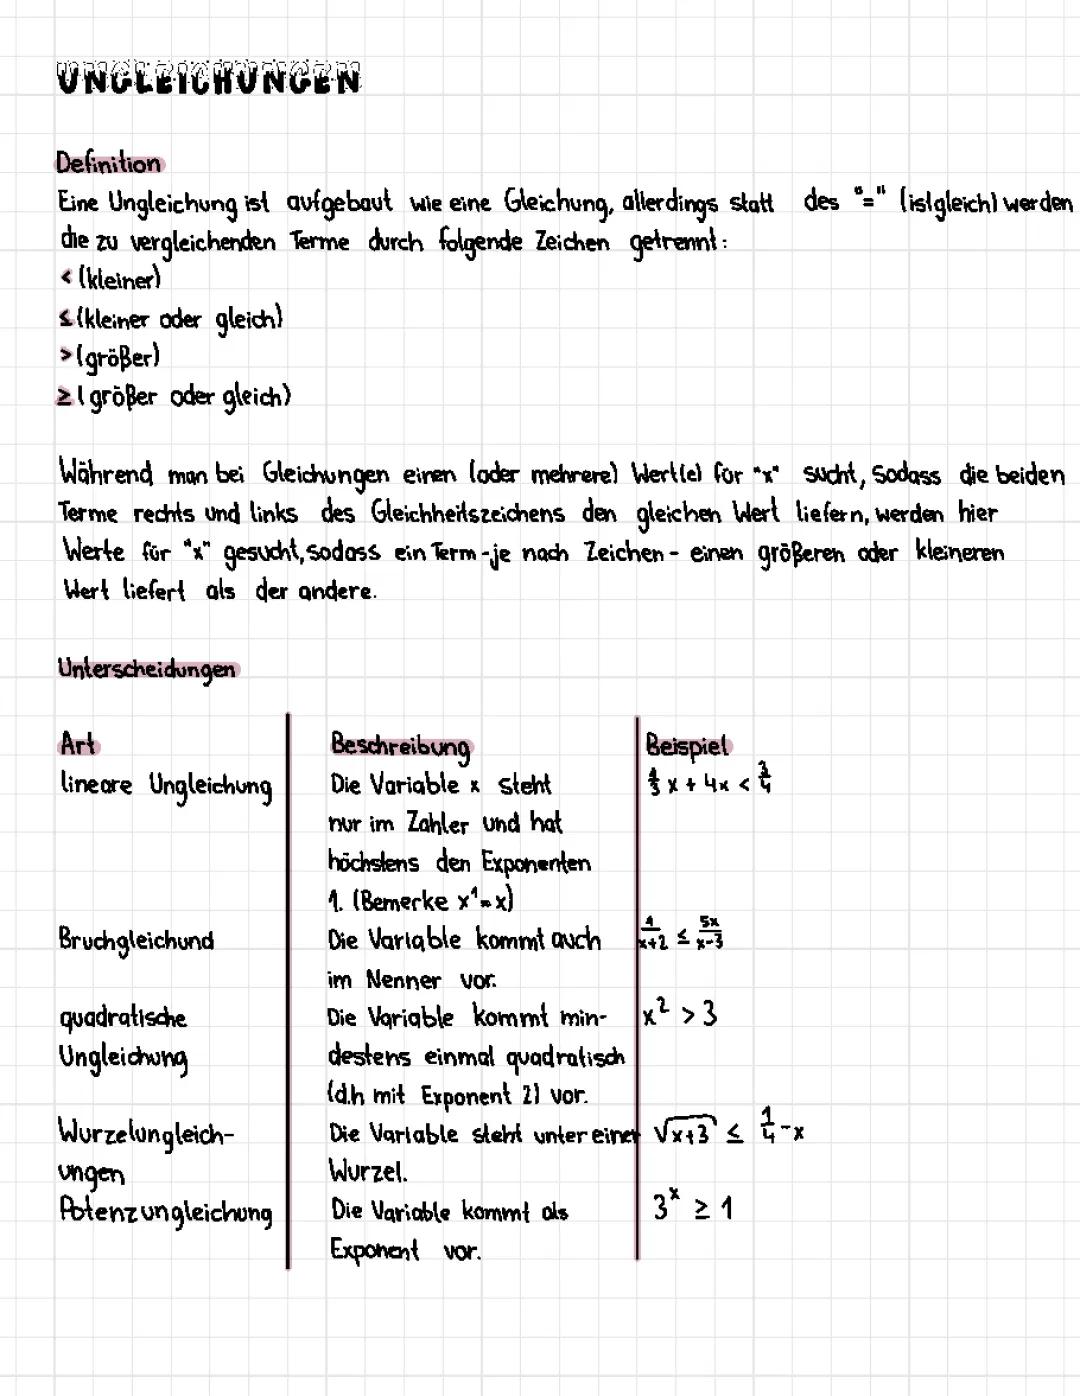 UNGLEICHUNGEN
Definition
Eine Ungleichung ist aufgebaut wie eine Gleichung, allerdings statt des "=" (istgleich) werden
die zu vergleichenden Terme durch folgende Zeichen getrennt:
< (kleiner)
≤ (kleiner oder gleich)
> (größer)
≥ (größer oder gleich)
Während man bei Gleichungen einen (oder mehrere) Wert(e) für "x" sucht, sodass die beiden
Terme rechts und links des Gleichheitszeichens den gleichen Wert liefern, werden hier
Werte für "x" gesucht, sodass ein Term - je nach Zeichen - einen größeren oder kleineren
Wert liefert als der andere.
Unterscheidungen
Art Beschreibung Beispiel
lineare Ungleichung Die Variable x steht 1/3 x + 4x < 3/4
nur im Zähler und hat
höchstens den Exponenten
1. (Bemerke x¹=x)
Bruchgleichund Die Variable kommt auch 1/(x+2) ≤ 5x/(x-3)
im Nenner vor.
quadratische Die Variable kommt min- x² > 3
Ungleichung destens einmal quadratisch
(d.h mit Exponent 2) vor.
Wurzelungleich- Die Variable steht unter einer √(x+3) ≤ 1/4 - x
ungen Wurzel.
Potenzungleichung Die Variable kommt als 3ˣ ≥ 1
Exponent vor.